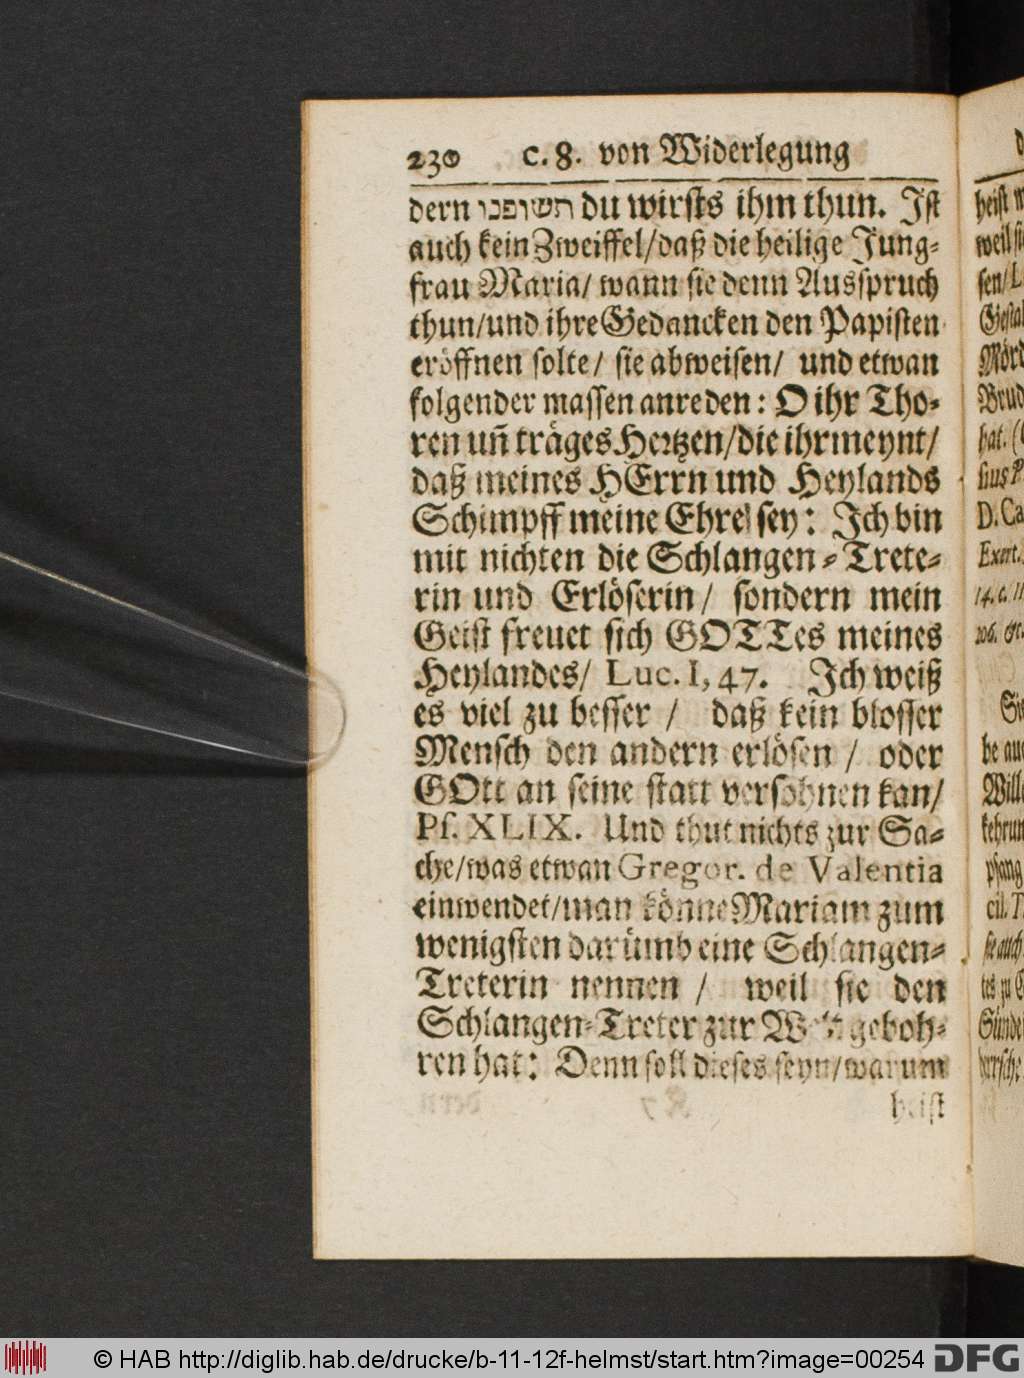 230 c. 8. von Widerlegung
dern תשופנו du wirsts ihm thun. Ist
auch kein Zweiffel/daß die heilige Jung-
frau Maria/ wann sie denn Ausspruch
thun/und ihre Gedancken den Papisten
eröffnen solte/ sie abweisen/ und etwan
folgender massen anreden: O ihr Tho-
ren uñ träges Hertzen/die ihr meynt/
daß meines HErrn und Heylands
Schimpff meine Ehre sey: Ich bin
mit nichten die Schlangen-Trete-
rin und Erlöserin/ sondern mein
Geist freuet sich GOTTes meines
Heylandes/ Luc. I, 47. Ich weiß
es viel zu besser / daß kein blosser
Mensch den andern erlösen / oder
GOtt an seine statt versöhnen kan/
Ps. XLIX. Und thut nichts zur Sa-
che/was etwan Gregor. de Valentia
einwendet/man könne Mariam zum
wenigsten darümb eine Schlangen-
Treterin nennen / weil sie den
Schlangen-Treter zur Welt geboh-
ren hat: Denn soll dieses seyn/warum
heist
heist
weil
sen/
Mörd
Brud
hat. (
D. Ca
Exert.
14. c. 11
206.
be auc
Wille
kehrun
pfang
cil. T
sie auch
tes zu
Sünde
© HAB http://diglib.hab.de/drucke/b-11-12f-helmst/start.htm?image=00254 DFG